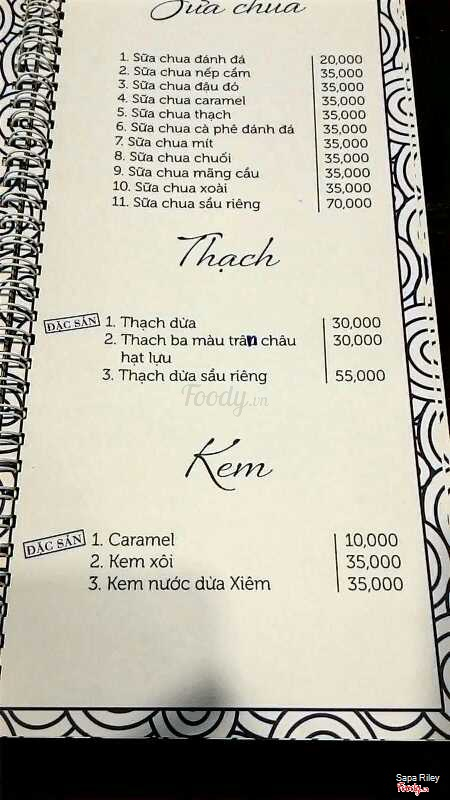 Sữa chua
1. Sữa chua đánh đá 20,000
2. Sữa chua nếp cẩm 35,000
3. Sữa chua đậu đỏ 35,000
4. Sữa chua caramel 35,000
5. Sữa chua thạch 35,000
6. Sữa chua cà phê đánh đá 35,000
7. Sữa chua mít 35,000
8. Sữa chua chuối 35,000
9. Sữa chua mãng cầu 35,000
10. Sữa chua xoài 35,000
11. Sữa chua sầu riêng 70,000
Thạch
ĐẶC SẢN 1. Thạch dừa 30,000
2. Thach ba màu trân châu 30,000
hạt lựu
3. Thạch dừa sầu riêng 55,000
Foody.vn
Kem
ĐẶC SẢN 1. Caramel 10,000
2. Kem xôi 35,000
3. Kem nước dừa Xiêm 35,000
Sapa Riley
Foody.vn